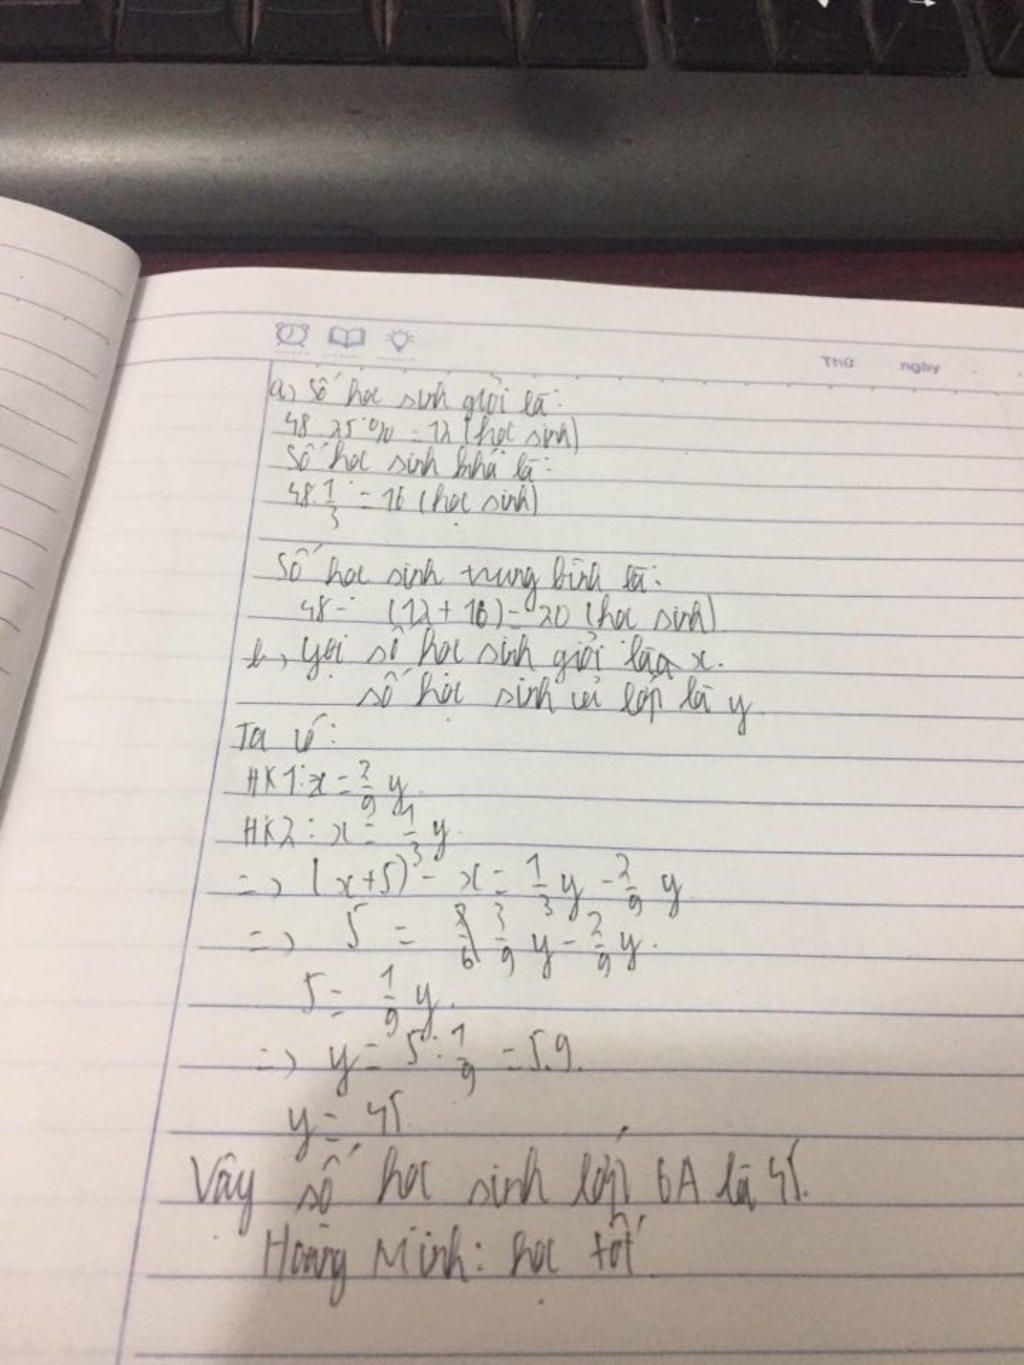 Thứ ngày
a, Số học sinh giỏi là:
48.25% = 12 (học sinh)
Số học sinh khá là:
48.1/3 = 16 (học sinh)
Số học sinh trung bình là:
48 - (12 + 16) = 20 (học sinh)
b, Gọi số học sinh giỏi là x.
số học sinh cả lớp là y
Ta có:
HK1: x = 2/9 y
HK2: x = 1/3 y
=> (x+5) - x = 1/3 y - 2/9 y
=> 5 = 3/9 y - 2/9 y.
5 = 1/9 y.
=> y = 5 : 1/9 = 5.9.
y = 45
Vây số học sinh lớp 6A là 45.
Hoàng Minh: học tốt